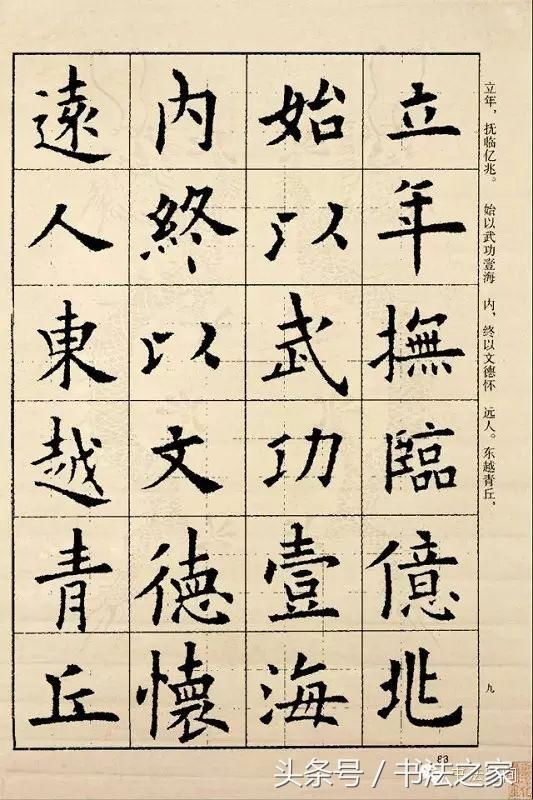 立年，抚临亿兆。 始以武功壹海 内，终以文德怀 远人。东越青丘，
九
立年撫臨億兆
始以武功壹海
内終以文德懷
遠人東越青丘
83
头条号 / 书法之家